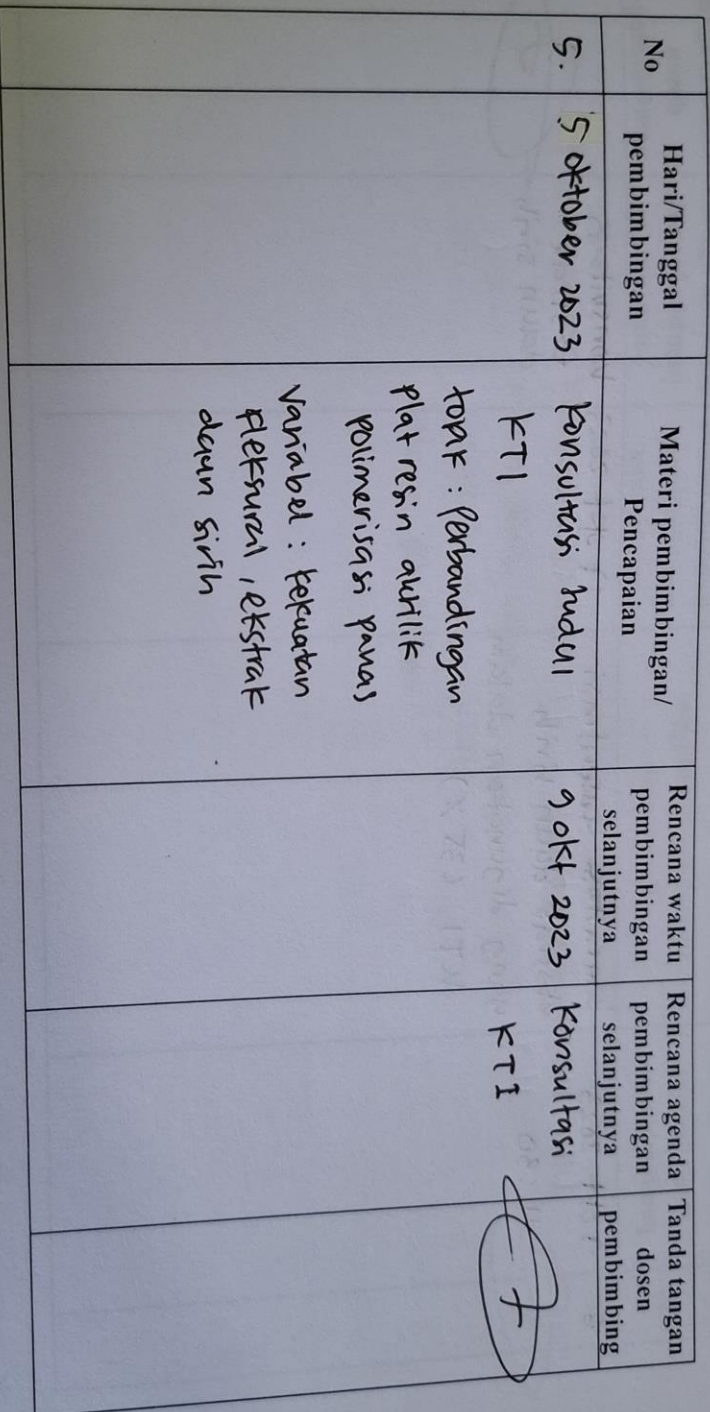 No
Hari/Tanggal
pembimbingan
Materi pembimbingan/
Pencapaian
Rencana waktu
pembimbingan
selanjutnya
Rencana agenda
pembimbingan
selanjutnya
Tanda tangan
dosen
pembimbing
5.
5 oktober 2023
Konsultasi Judul
KTI
topik : Perbandingan
plat resin akrilik
polimerisasi panas
Variabel : kekuatan
fleksural, ekstrak
daun sirih
9 okt 2023
Konsultasi
KTI